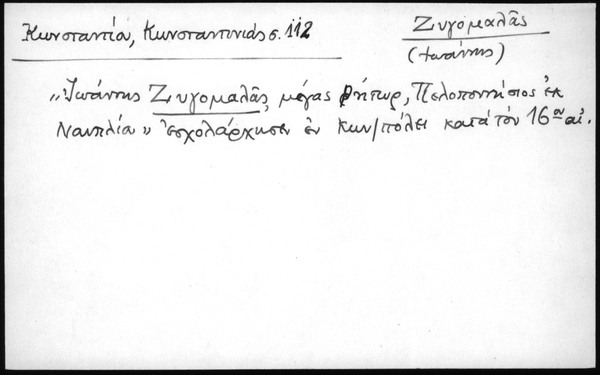 Κωνσταντία, Κωνσταντινιάς σ. 112
Ζυγομαλᾶς
(Ἰωάννης)
„Ἰωάννης Ζυγομαλᾶς, μέγας ῥήτωρ, Πελοποννήσιος ἐκ
Ναυπλία" ἐσχολάρχησεν ἐν Κων/πόλει κατά τόν 16ον αἰ.